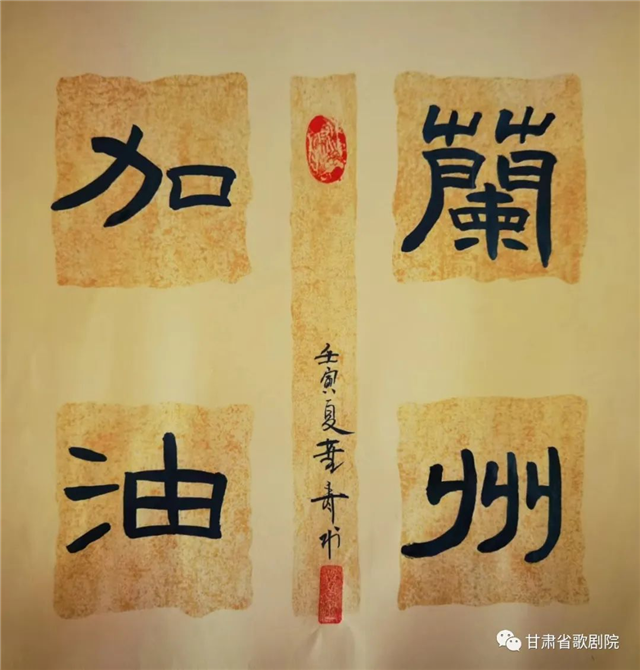 蘭州
加油
壬寅夏董青竹
甘肃省歌剧院